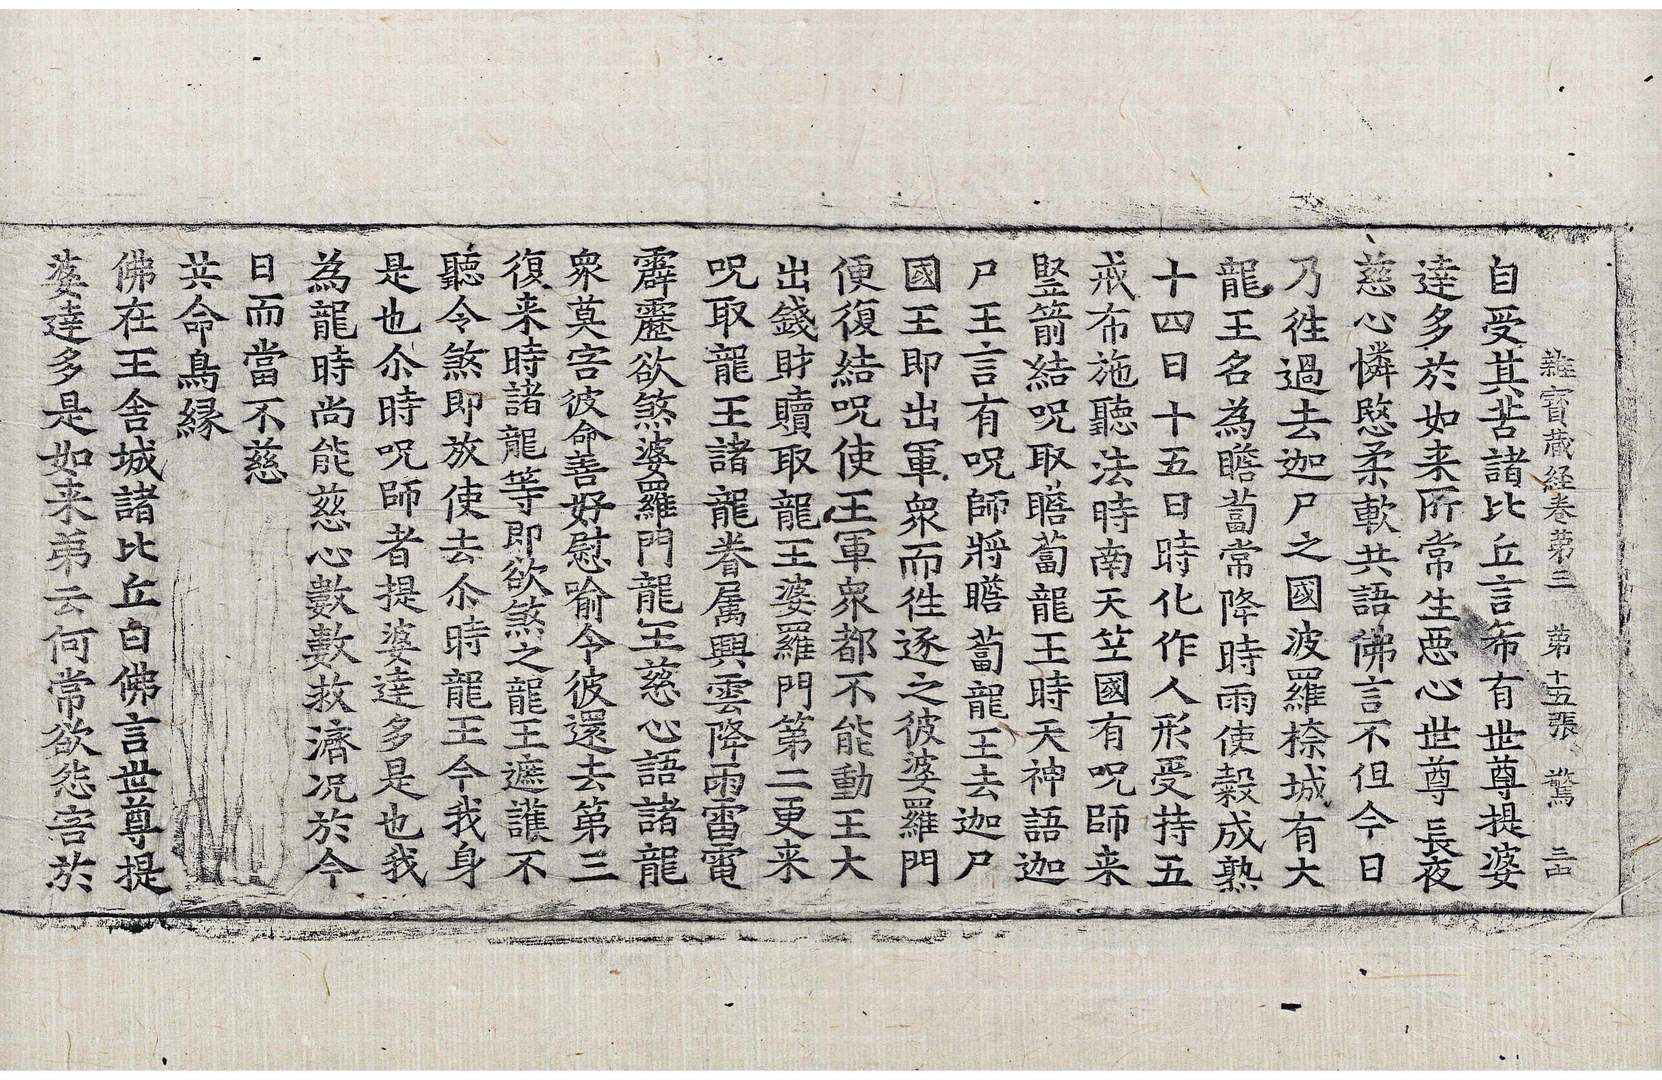 雜寶藏経卷第三　第十五張　驚　三古
自受其苦諸比丘言希有世尊提婆
達多於如来所常生惡心世尊長夜
慈心憐愍柔軟共語佛言不但今日
乃徃過去迦尸之國波羅㮈城有大
龍王名為瞻蔔常降時雨使穀成熟
十四日十五日時化作人形受持五
戒布施聽法時南天竺國有呪師来
竪箭結呪取瞻蔔龍王時天神語迦
尸王言有呪師將瞻蔔龍王去迦尸
國王即出軍衆而徃逐之彼婆羅門
便復結呪使王軍衆都不能動王大
出錢財贖取龍王婆羅門第二更来
呪取龍王諸龍眷属興雲降雨雷電
霹靂欲煞婆羅門龍王慈心語諸龍
衆莫害彼命善好慰喻令彼還去第三
復来時諸龍等即欲煞之龍王遮護不
聽令煞即放使去尒時龍王今我身
是也尒時呪師者提婆達多是也我
為龍時尚能慈心數數救濟況於今
日而當不慈
共命鳥縁
佛在王舍城諸比丘白佛言世尊提
婆達多是如来弟云何常欲怨害於